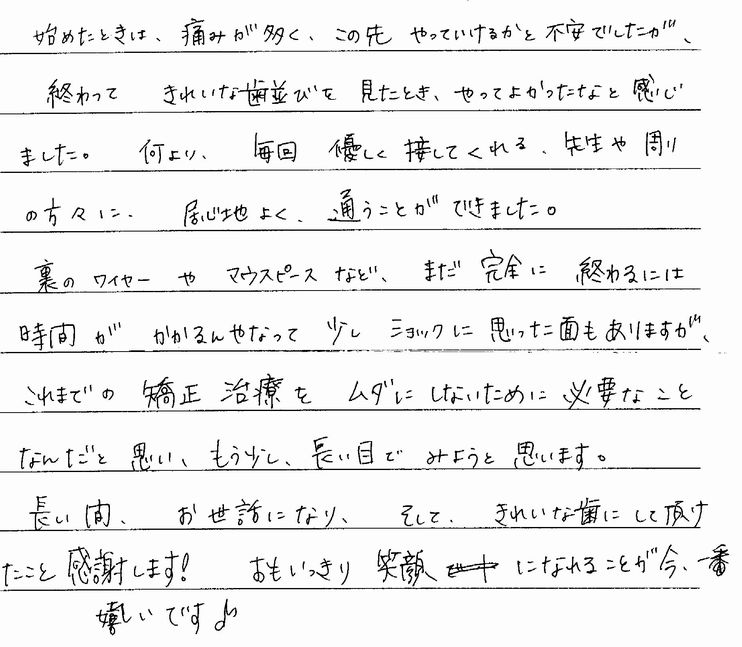 始めたときは、痛みが多く、この先 やっていけるかと不安でしたが、
終わって きれいな歯並びを 見たとき、やってよかったなと感じ
ました。 何より、 毎回 優しく接してくれる、先生や周り
の方々に、 居心地よく、通うことができました。
裏のワイヤー や マウスピース など、まだ 完全に 終わるには
時間が かかるんやなって 少し ショックに 思った面もありますが、
これまでの 矯正治療を ムダに しないために 必要なこと
なんだと 思い、もう少し、長い目で みようと思います。
長い間、 お世話になり、 そして、 きれいな歯にして頂け
たこと 感謝します! おもいっきり 笑顔 になれることが今、一番
嬉しいです♪